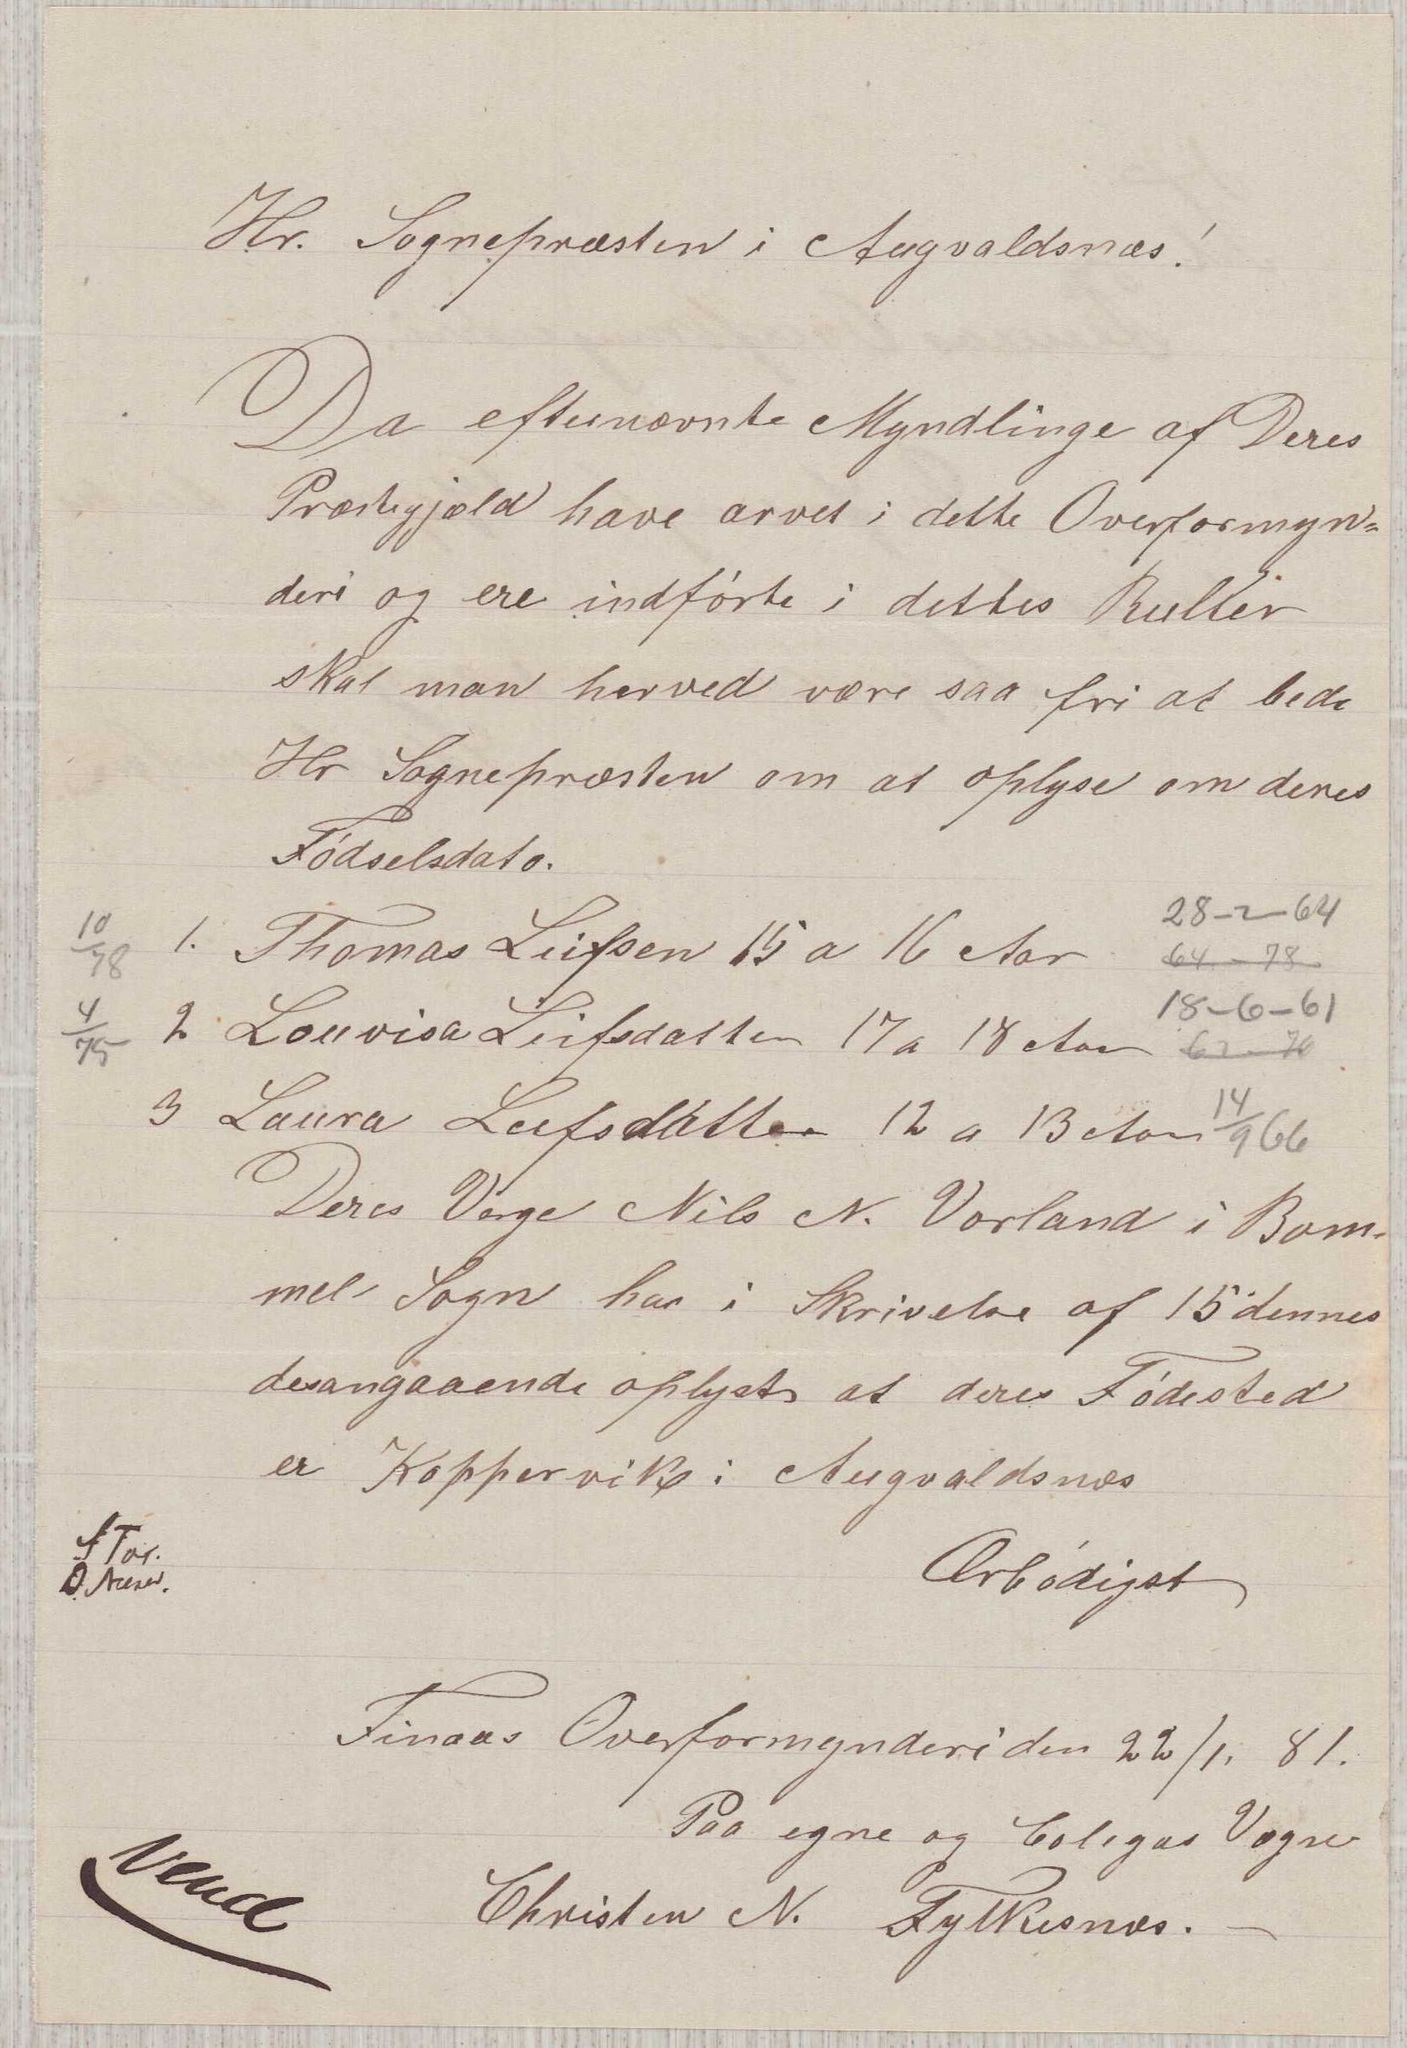 Hr. Sognepræsten i Augvaldsnæs!
Da efternævnte Myndlinge af Deres
Præstegjæld have arvet i dette Overformyn=
deri og ere indførte i dettes Ruller
skal man herved være saa fri at bede
Hr Sognepræsten om at oplyse om deres
Fødselsdato.
10/78 1. Thomas Leifsen 15 a 16 Aar 28-2-64
64 - 78
4/75 2 Louvisa Leifsdatter 17 a 18 Aar 18-6-61
3 Laura Leifsdatter 12 a 13 Aar 14/9 66
Deres Verge Nils N. Vorland i Bom-
mel Sogn har i Skrivelse af 15 dennes
desangaaende oplyst at deres Fødested
er Koppervik i Augvaldsnæs
Ærbødigst
Finaas Overformynderi den 22/1. 81.
Paa egne og Colegas Vegne
Christen N. Fylkesnæs. —
Vend